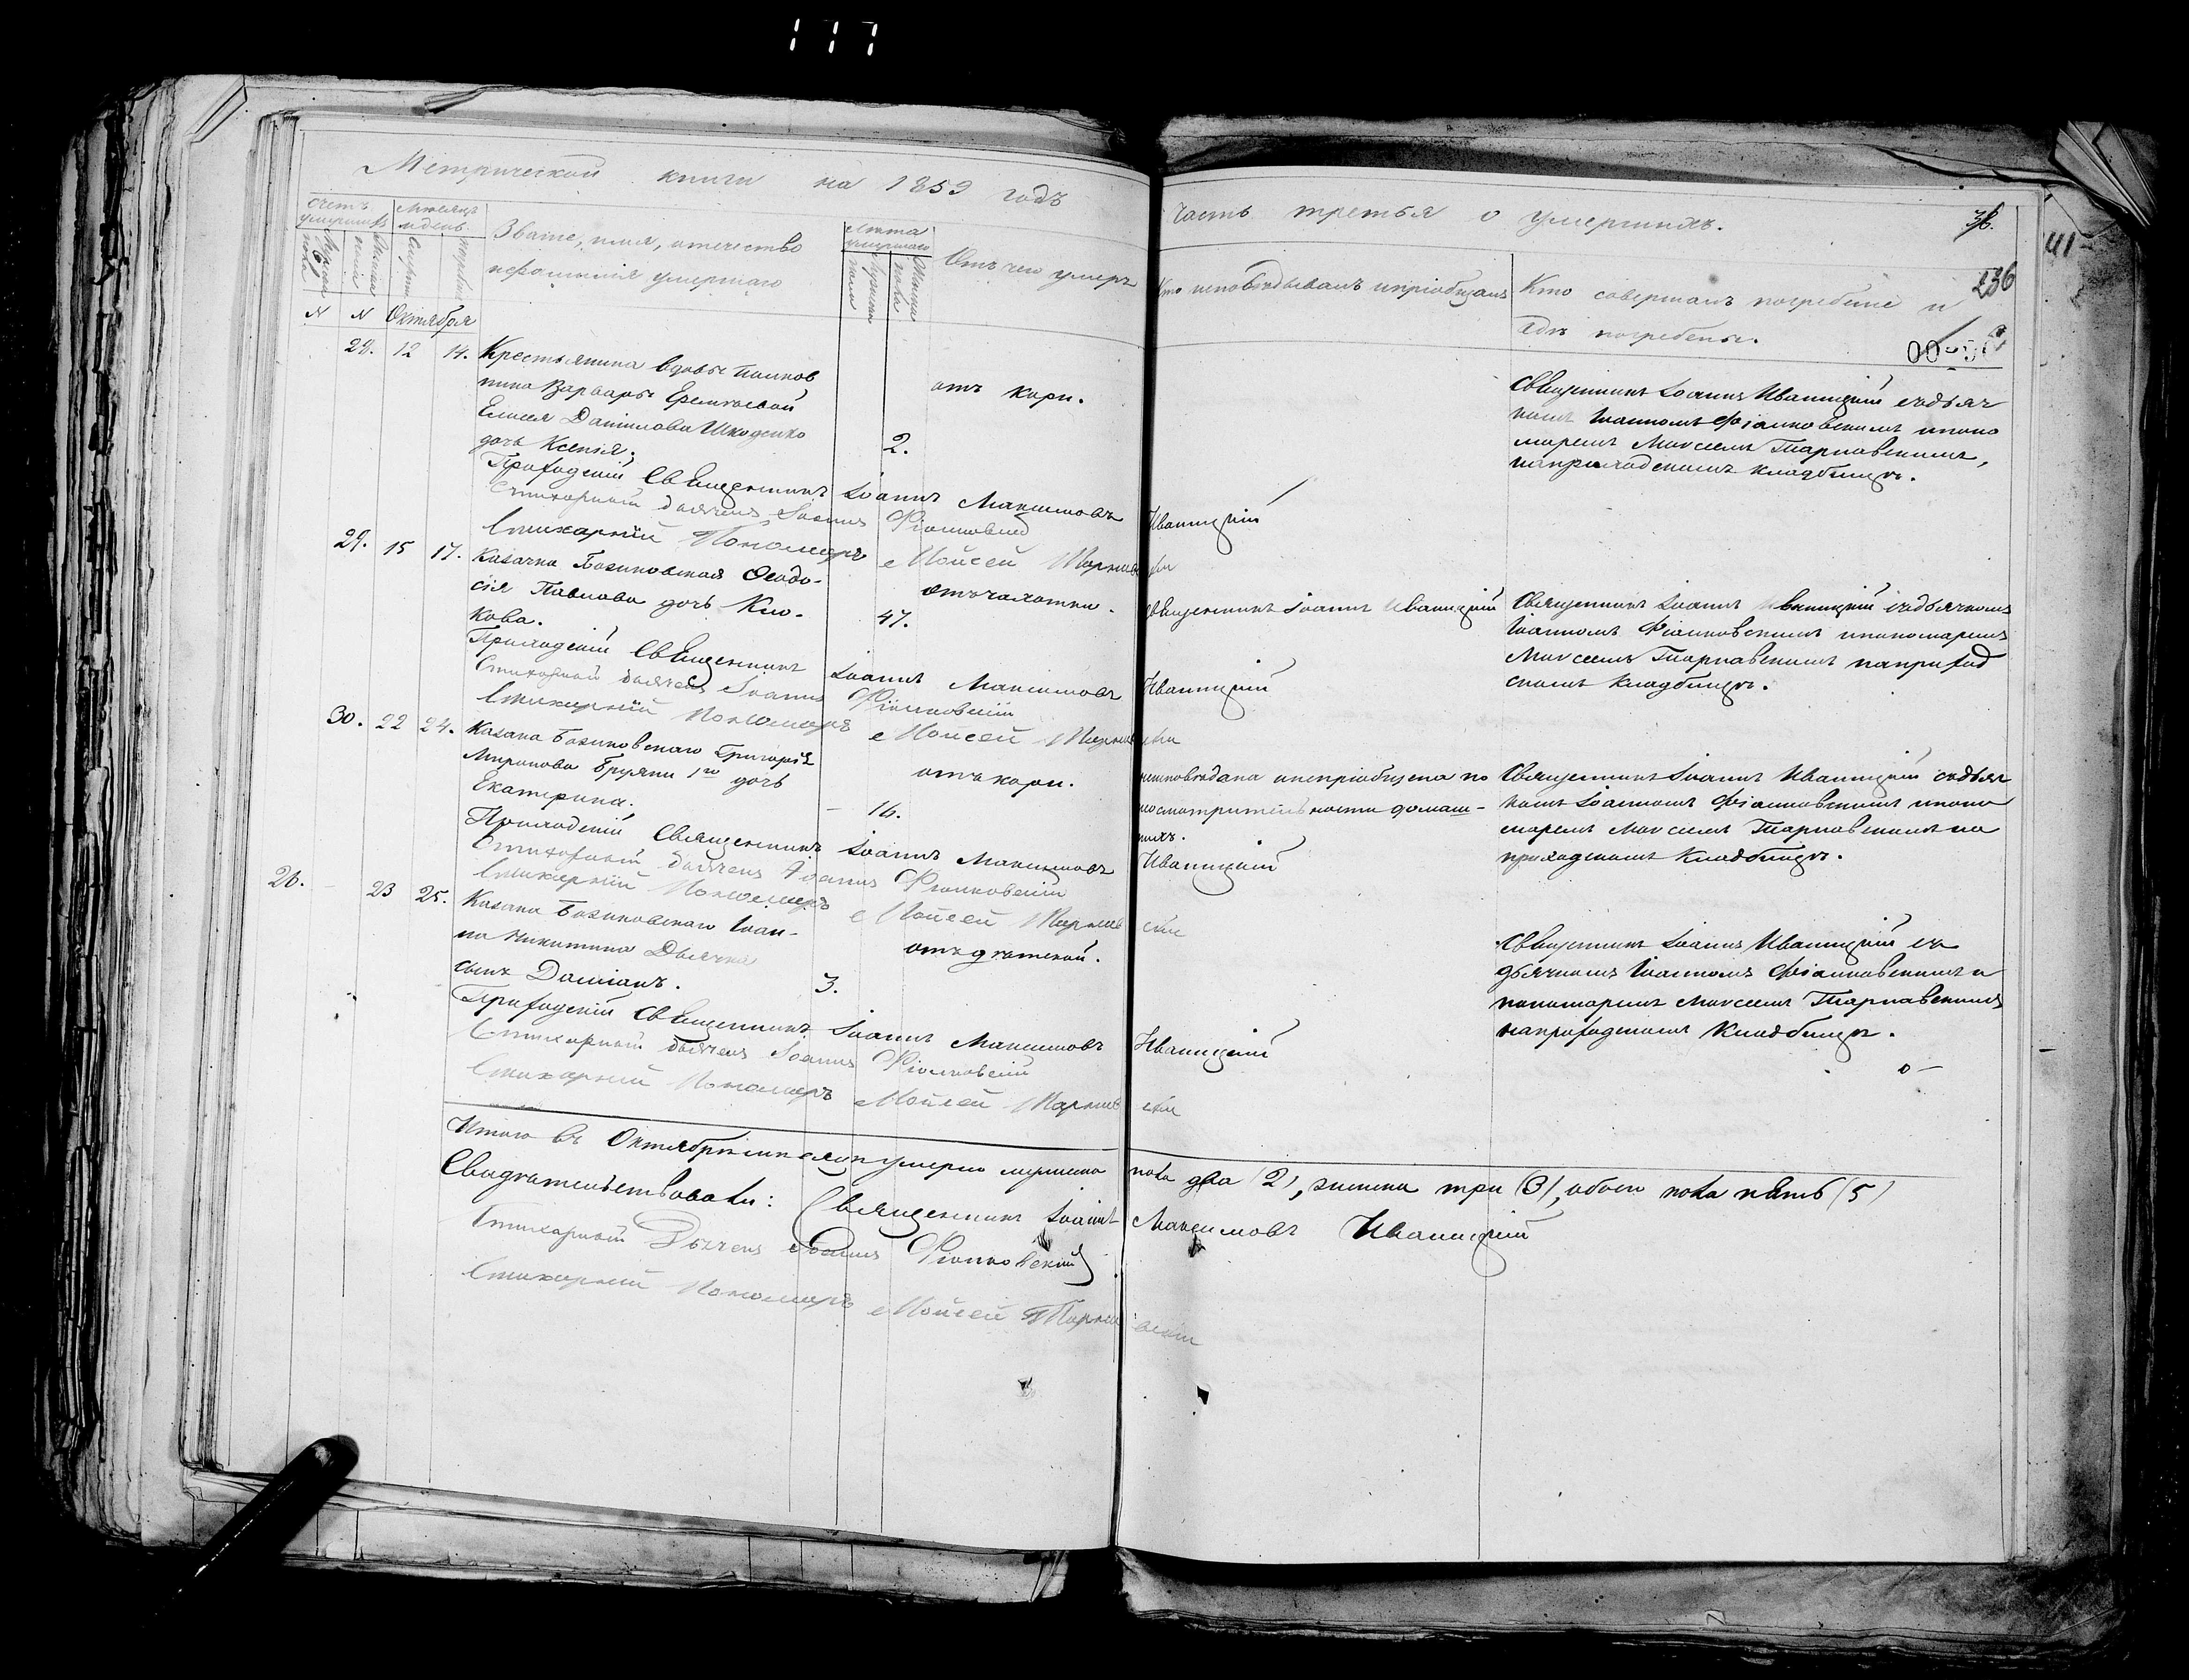 117
Метрической книги на 1859 годъ
Часть третья о умершихъ.
236
Счетъ умершихъ
Мѣсяцъ и день
Званіе, имя, отечество
и фамилія умершаго
Лѣта умершаго
Отъ чего умеръ
Кто исповѣдывалъ и пріобщалъ
Кто совершалъ погребеніе и
гдѣ погребены.
N N Октября
28. 12 14. Крестьянина вдовы
Варвары
Елисея Данилова Шкоденко
дочь Ксенія.
2.
отъ кори.
Священникъ Іоаннъ Иваницкій съ дьяч
комъ Іоанномъ Фіалковскимъ и поно
маремъ Моисеемъ Тарнавскимъ,
на приходскомъ кладбищѣ.
Приходскій Священникъ Іоаннъ Максимовъ Иваницкій
Стихарный дьячекъ Іоаннъ Фіалковскій
Стихарній Пономарь Моисей Тарнавскій
29. 15 17. Казачка Базиковская Ѳеодо-
сія Павлова дочь Клю-
кова.
47.
отъ чахотки.
Священникъ Іоаннъ Иваницкій
Священникъ Іоаннъ Иваницкій съ дьячкомъ
Іоанномъ Фіалковскимъ и пономаремъ
Моисеемъ Тарнавскимъ на приход
скомъ кладбищѣ.
Приходскій Священникъ Іоаннъ Максимовъ Иваницкій
Стихарный дьячекъ Іоаннъ Фіалковскій
Стихарній Пономарь Моисей Тарнавскій
30. 22 24. Казака Базиковскаго Григорія
Миронова 1го дочь
Екатерина.
16.
отъ кори.
неисповѣдана и непріобщена по
несмотрительности домаш-
нихъ.
Священникъ Іоаннъ Иваницкій съ дьяч
комъ Іоанномъ Фіалковскимъ и поно
маремъ Моисеемъ Тарнавскимъ на
приходскомъ Кладбищѣ.
Приходскій Священникъ Іоаннъ Максимовъ Иваницкій
Стихарный дьячекъ Іоаннъ Фіалковскій
Стихарній Пономарь Моисей Тарнавскій
26. 23 25. Казака Базиковскаго Іоан-
на Никитина Дьячка
сынъ Даміанъ.
3.
отъ дѣтской.
Священникъ Іоаннъ Иваницкій съ
дьячкомъ Іоанномъ Фіалковскимъ и
пономаремъ Моисеемъ Тарнавскимъ
на приходскомъ Кладбищѣ.
Приходскій Священникъ Іоаннъ Максимовъ Иваницкій
Стихарный дьячекъ Іоаннъ Фіалковскій
Стихарній Пономарь Моисей Тарнавскій
Итого въ Октябрѣ мѣсяцѣ умерло мужеска пола два (2), женска три (3), обоего пола пять (5)
Свидѣтельствовали: Священникъ Іоаннъ Максимовъ Иваницкій
Стихарный Дьячекъ Іоаннъ Фіалковскій
Стихарній Пономарь Моисей Тарнавскій